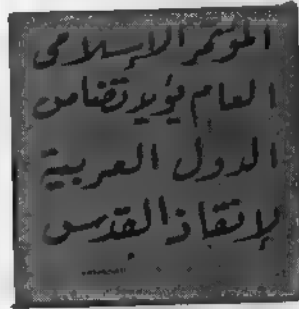 المؤتمر الإسلامى
العام يؤيد تضامن
الدول العربية
لإنقاذ القدس